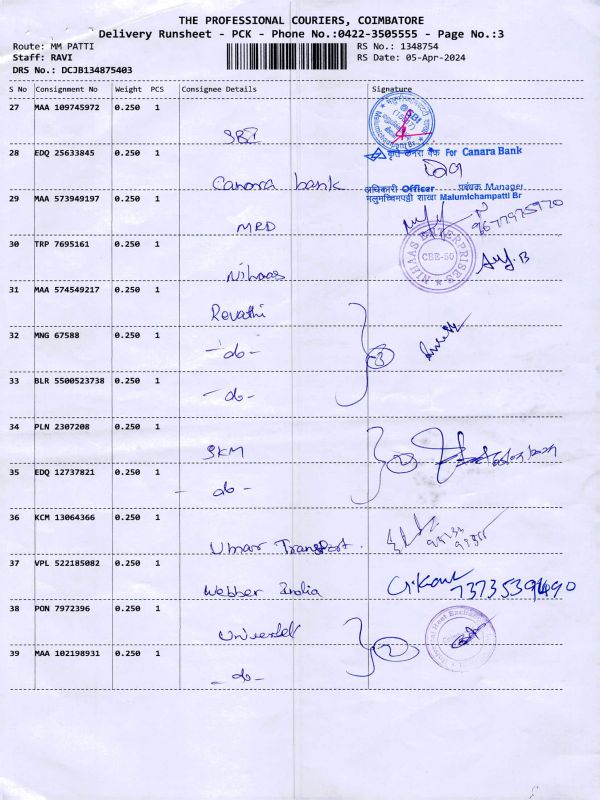 THE PROFESSIONAL COURIERS, COIMBATORE
Delivery Runsheet - PCK - Phone No.:0422-3505555 - Page No.:3
Route: MM PATTI
RS No.: 1348754
Staff: RAVI
RS Date: 05-Apr-2024
DRS No.: DCJB134875403
S No Consignment No Weight PCS Consignee Details Signature
27 MAA 109745972 0.250 1
SBI
28 EDQ 25633845 0.250 1
कृते केनरा बैंक For Canara Bank
Canara bank
अधिकारी Officer प्रबंधक Manager
मलुमच्चिमपट्टी शाखा Malumichampatti Br
29 MAA 573949197 0.250 1
MRD
30 TRP 7695161 0.250 1
NIHAAS ENTERPRISES
CBE-50
Nihaas
31 MAA 574549217 0.250 1
Revathi
32 MNG 67588 0.250 1
-do-
3
33 BLR 5500523738 0.250 1
-do-
34 PLN 2307208 0.250 1
SKM
2
35 EDQ 12737821 0.250 1
-do-
36 KCM 13064366 0.250 1
Umar Transport.
37 VPL 522185082 0.250 1
Webber India
38 PON 7972396 0.250 1
Universal
2
39 MAA 102198931 0.250 1
-do-